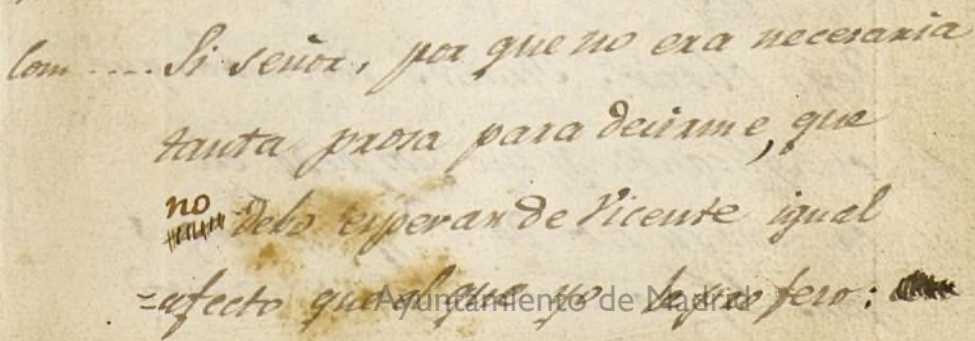 Com .... Si señor, por que no era necesaria
tanta prosa para decirme, que
no debo esperar de Vicente igual
=afecto que el que yo le profero:
Ayuntamiento de Madrid